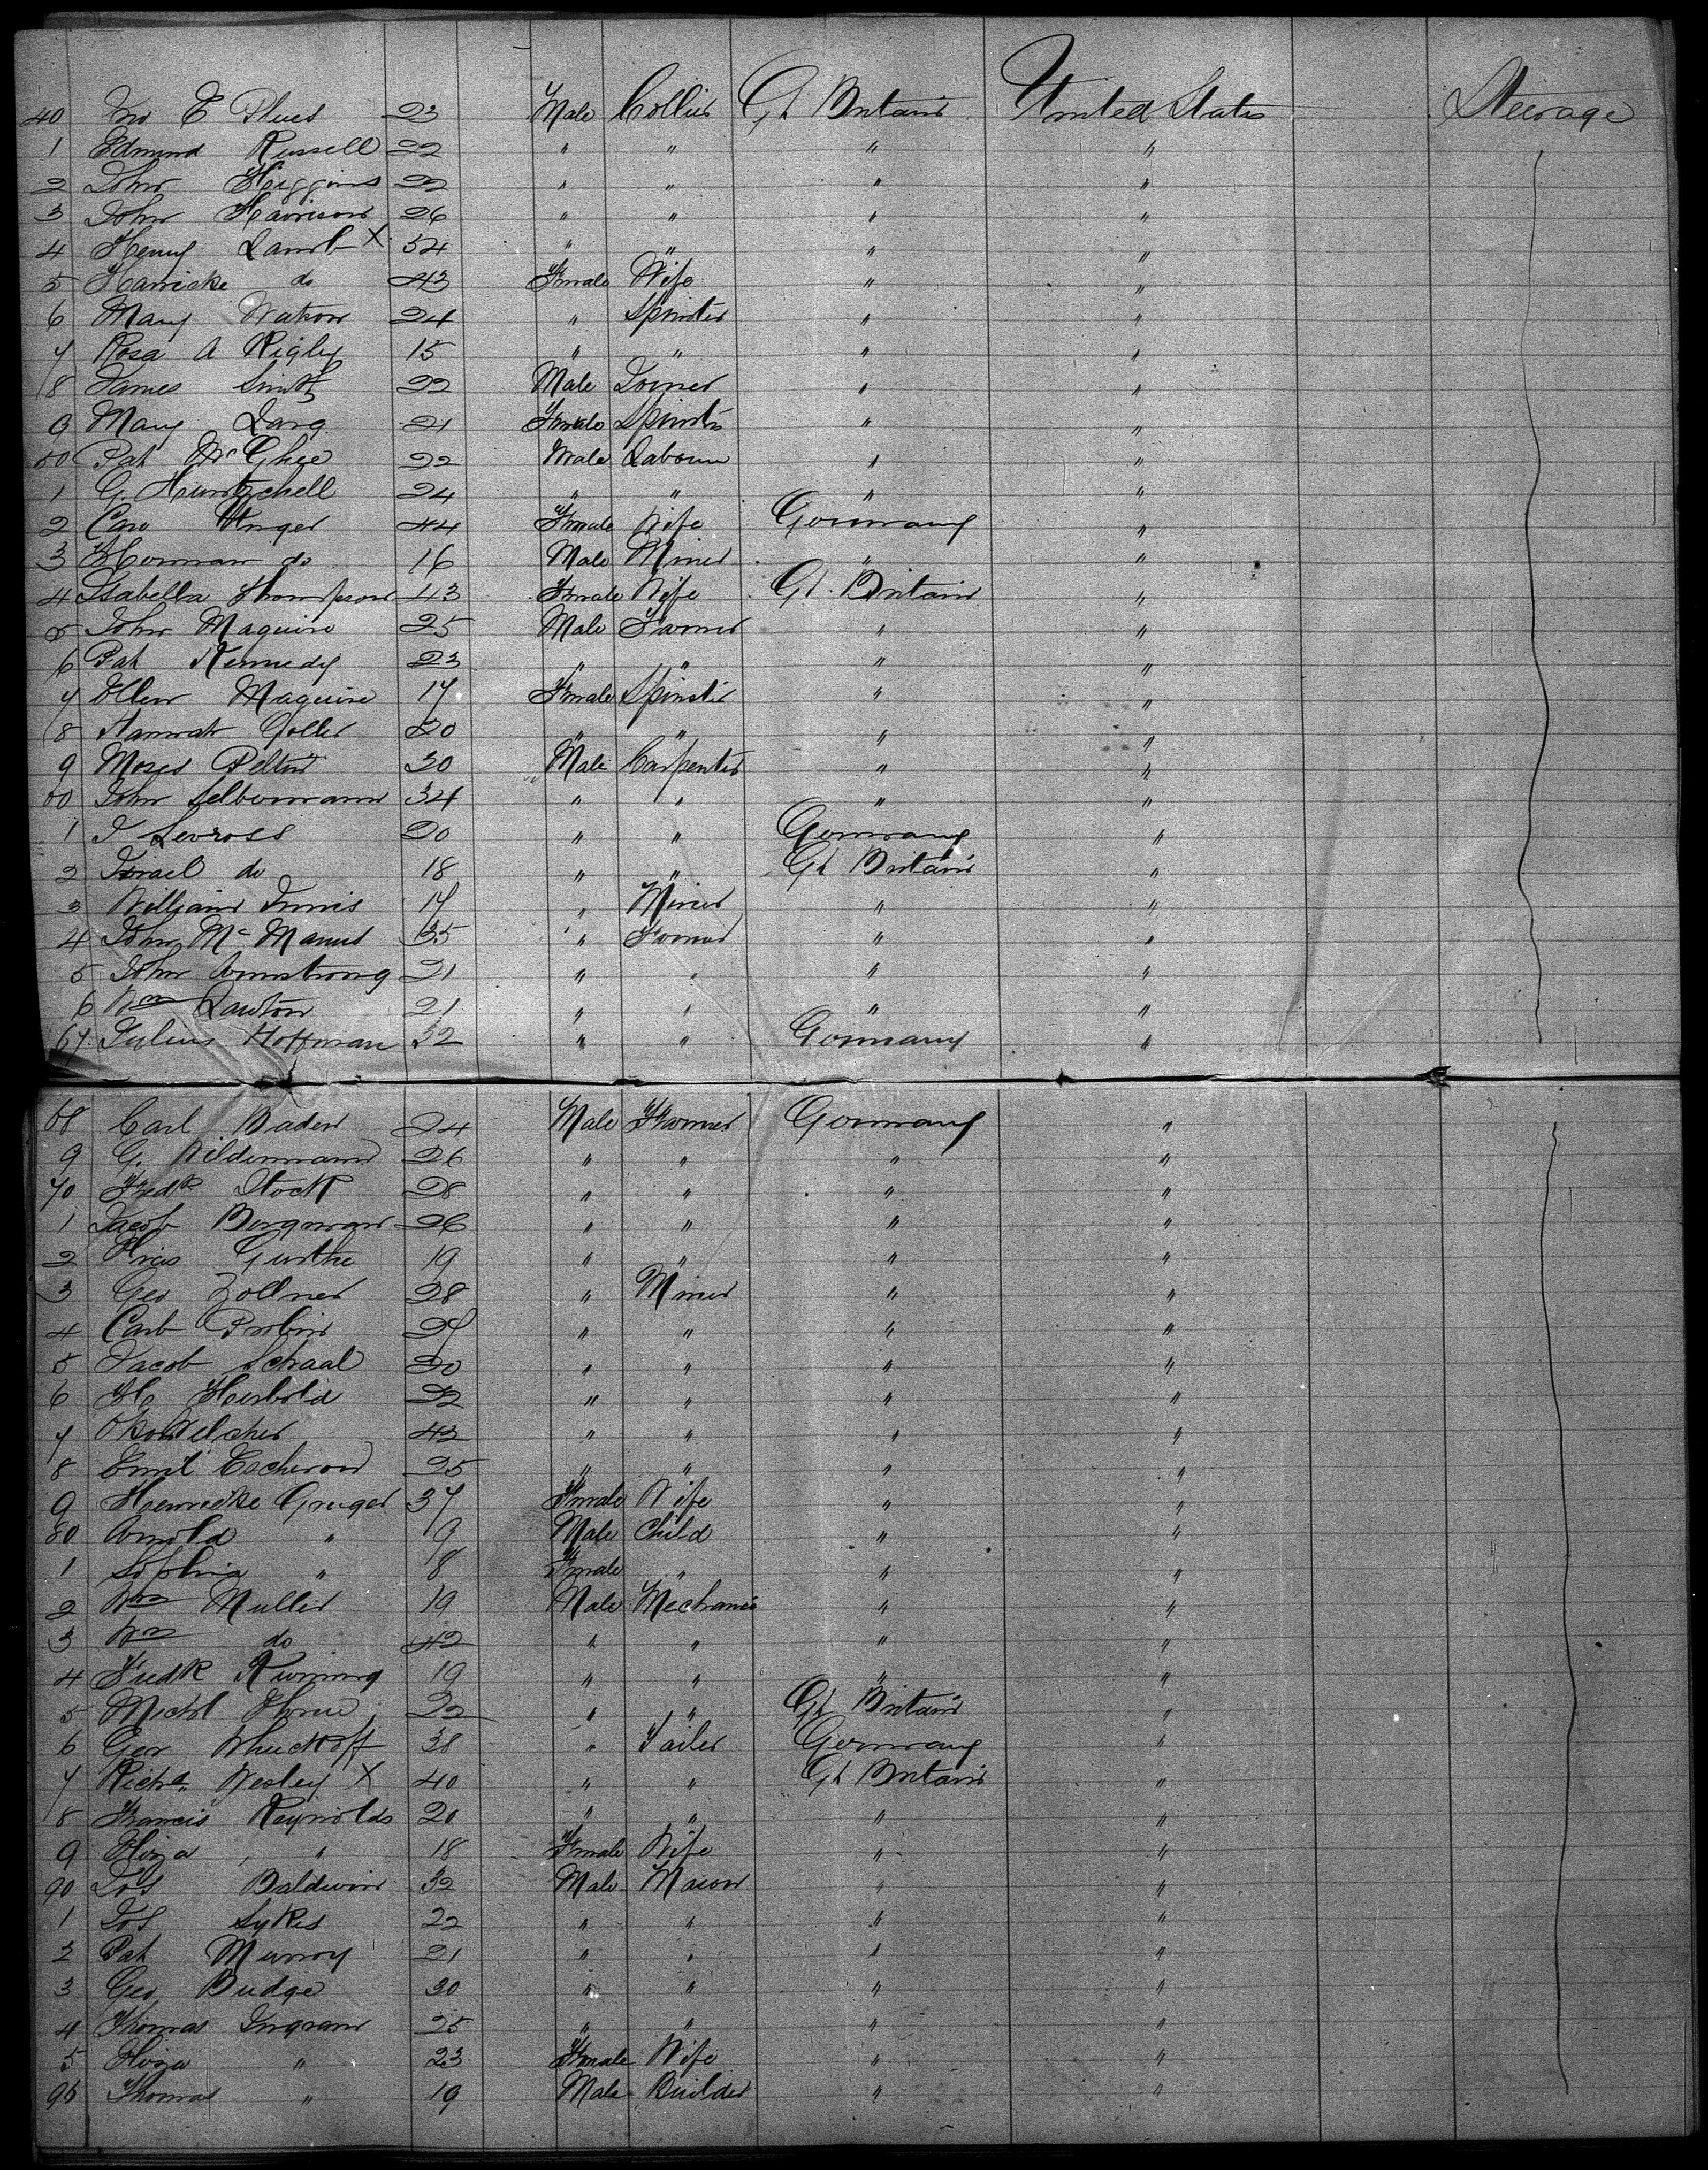 40 Jno E Plues 23 Male Collier Gt Britain United States Steerage
1 Edmund Russell 22 " " " "
2 John Higgins 22 " " " "
3 John Harrison 26 " " " "
4 Henry Lamb X 54 " " " "
5 do 43 Female Wife " "
6 Mary Watson 24 " Spinster " "
7 Rosa A Rigby 15 " " " "
8 James Smith 22 Male Joiner " "
9 Mary Lang 21 Female Spinster " "
50 Pat McGhee 22 Male Labourer " "
1 G. 24 " " " "
2 Caro Unger 44 Female Wife Germany "
3 Herman do 16 Male Miner " "
4 Isabella Thompson 43 Female Wife Gt Britain "
5 John Maguire 25 Male Farmer " "
6 Pat Kennedy 23 " " " "
7 Ellen Maguire 17 Female Spinster " "
8 Hannah 20 " " " "
9 Moses 30 Male Carpenter " "
60 John 34 " " " "
1 20 " " Germany "
2 Israel do 18 " " Gt Britain "
3 William Innis 17 " Miner " "
4 John McManus 35 " Farmer " "
5 John Armstrong 21 " " " "
6 Wm Lawton 21 " " " "
67 Julius Hoffman 32 " " Germany "
68 Carl Bader 24 Male Farmer Germany "
9 G. Wildermann 26 " " " "
70 Fredk Stock 28 " " " "
1 Jacob Bergman 26 " " " "
2 19 " " " "
3 Geo Zollner 28 " Miner " "
4 27 " " " "
5 Jacob Schaal 20 " " " "
6 Herbold 22 " " " "
7 42 " " " "
8 Emil 25 " " " "
9 37 Female Wife " "
80 Arnold " 9 Male Child " "
1 Sophia " 8 Female " " "
2 Wm Muller 19 Male Mechanic " "
3 Wm do 42 " " " "
4 Fredk 19 " " " "
5 Michl 22 " " Gt Britain "
6 Geo 38 " Tailor Germany "
7 Richd Wesley X 40 " " Gt Britain "
8 Francis Reynolds 20 " " " "
9 Eliza " 18 Female Wife " "
90 Jos Baldwin 32 Male Mason " "
1 Jos Sykes 22 " " " "
2 Pat Murray 21 " " " "
3 Geo Budge 30 " " " "
4 Thomas Ingram 25 " " " "
5 Eliza " 23 Female Wife " "
96 Thomas " 19 Male Builder " "